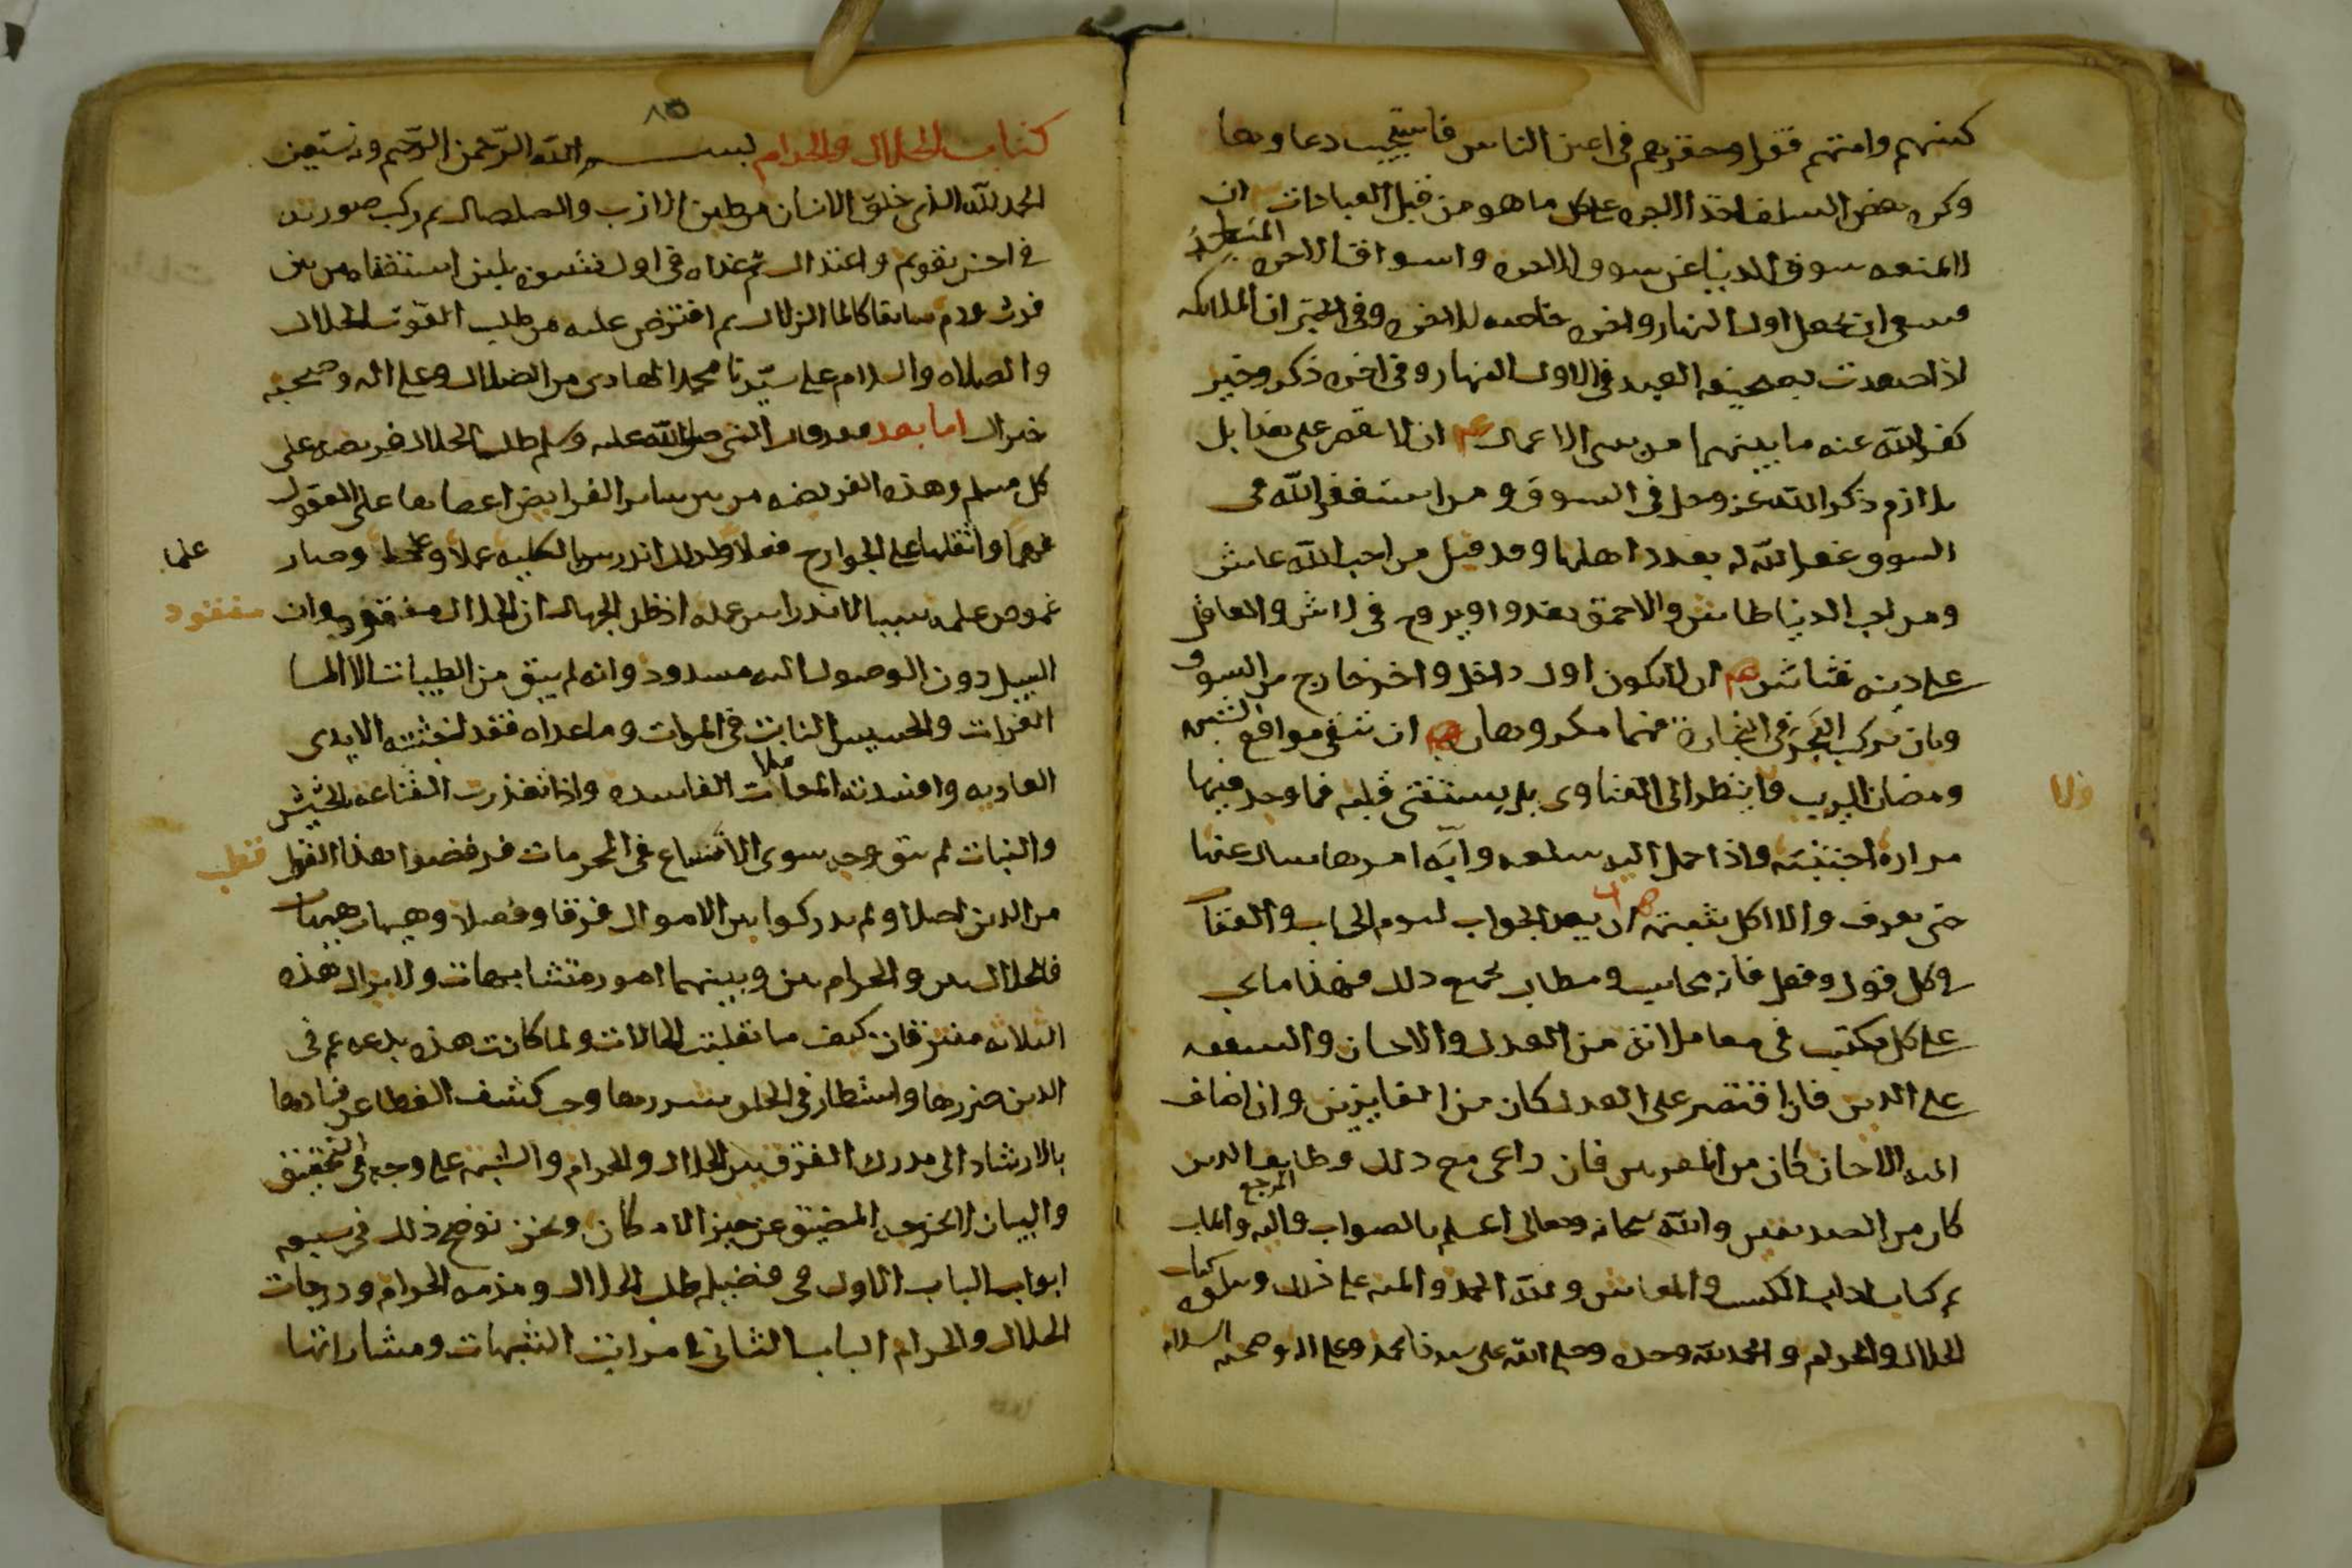 كسبهم وامتهم فقرا وحقرهم في اعين الناس فاستجيب دعاوها
وكره بعض السلف اخذ الاجره على كل ما هو من قبل العبادات ان
لا يمنعه سوق الدنيا عن سوق الاخره واسواق الاخره المساجد
فينبغي ان يجعل اول النهار واخره خاصه للاخره وفي الخبر ان الملايكه
اذا صعدت بصحيفه العبد في الاول النهار وفي اخره ذكر وخير
كفر الله عنه ما بينهما من سي الاعمال ان لا يقتصر على هذا بل
يلازم ذكر الله عز وجل في السوق ومن استغفر الله في
السوق غفر الله له بعدد اهلها وقد قيل من احب الله عاش
ومن احب الدنيا طاش والاحمق يغدوا ويروح في لاش والعاقل
على دينه فتاش ان لا يكون اول داخل واخر خارج من السوق
وبان يركب البحر في التجارة فهما مكروهان ان يتقي مواقع الشبه
ومضان الريب ولا ينظر الى الفتاوى بل يستفتي قلبه فما وجد فيها
ولا
مراره اجتنبته واذا حمل اليه سلعه رابه امرها سال عنها
حتى يعرف والا اكل شبهته ان يعد الجواب ليوم الحساب والعقاب
في كل قول وفعل فانه محاسب ومطالب بجميع ذلك فهذا ما على
على كل مكتسب في معاملاته من العدل والاحسان والشفقه
على الدين فان اقتصر على العدل كان من الفايزين وان اضاف
اليه الاحسان كان من المقربين فان راعى مع ذلك وظايف الدين
كان من الصديقين والله سبحانه وتعالى اعلم بالصواب واليه المرجع والماب
تم كتاب اداب الكسب والمعاش ولله الحمد والمنه على ذلك ويتلوه كتاب
الحلال والحرام والحمد لله وحده وصلى الله على سيدنا محمد وعلى اله وصحبه
٨٥
كتاب الحلال والحرام بسم الله الرحمن الرحيم وبه نستعين
الحمد لله الذي خلق الانسان من طين لازب والصلصال ثم ركب صورته
في احسن تقويم واعتدال ثم غذاه في اول نشوه بلبن استصفاه من بين
فرث ودم سايغا كالما الزلال ثم افترض عليه من طلب القوت الحلال
والصلاه والسلام على سيدنا محمد الهادى من الضلال وعلى اله وصحبه
خير ال اما بعد فقد قال النبي صلى الله عليه وسلم طلب الحلال فريضه على
كل مسلم وهذه الفريضه من بين ساير الفرايض اعصاها على العقول
فهما واثقلها على الجوارح فعلا ولذلك اندرس بالكليه عملا وعلما وصار
علما
غموض علمه سببا لاندراس عمله اذ ظن الجهال ان الحلال مفقود وان
مفقود
السبيل دون الوصول اليه مسدود وانه لم يبق من الطيبات الا الما
الفرات والحشيش النابت في الموات وما عداه فقد اخبثته الايدى
العاديه وافسدته المعاملات الفاسده واذا تعذرت القناعه بالحشيش
والنبات لم يبق وجه سوى الاتساع في المحرمات فرفضوا هذا القطب
قطب
من الدين اصلا ولم يدركوا بين الاموال فرقا وفصلا وهيهات هيهات
فالحلال بين والحرام بين وبينهما امور متشابهات ولا يزال هذه
الثلاثه مقترنات كيف ما تقلبت الحالات ولما كانت هذه بدعه عم في
الدين ضررها واستطار في الخلق شررها وجب كشف الغطا عن فسادها
بالارشاد الى مدرك الفرق بين الحلال والحرام والشبه على وجه التحقيق
والبيان لا يخرجه المضيق عن حيز الامكان ونحن نوضح ذلك في سبعه
ابواب الباب الاول في فضيله طلب الحلال ومذمه الحرام ودرجات
الحلال والحرام الباب الثاني في مراتب الشبهات ومثاراتها